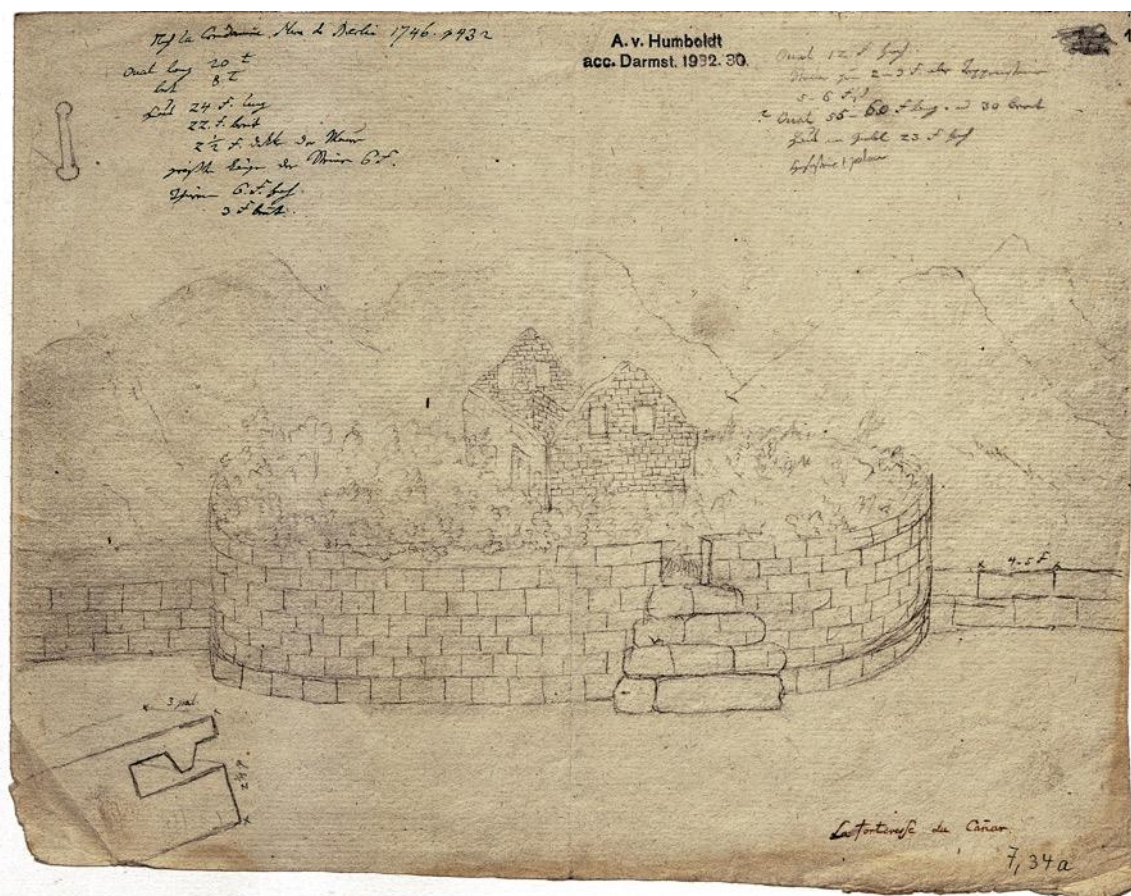 la Condamine Mem de Berlin 1746. p 432
Oval lang 20 t
breit 8 t
Haus 24 F. lang
22 F. breit
2 ½ F. dikke der Mauer
größte Länge der Steine 6 F.
Thüren 6 F. hoch.
3 F breit.
A. v. Humboldt
acc. Darmst. 1932. 30.
1
Oval 12 F hoch
2–3 F. aber
5–6 F
? Oval 55–60 F lang. 30 breit
Haus im Giebel 23 F hoch
4-5 F
3 pal
2 ½ p
La forteresse du Cañar.
7,34a